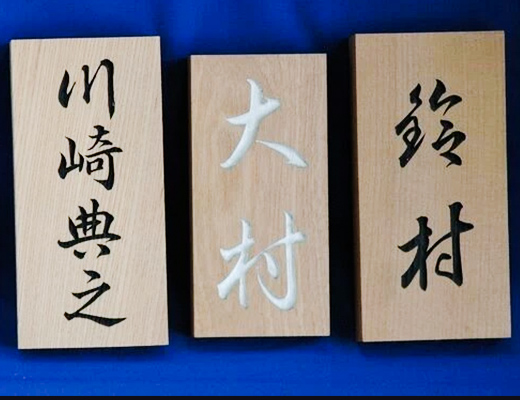 川崎典之
大村
鈴村